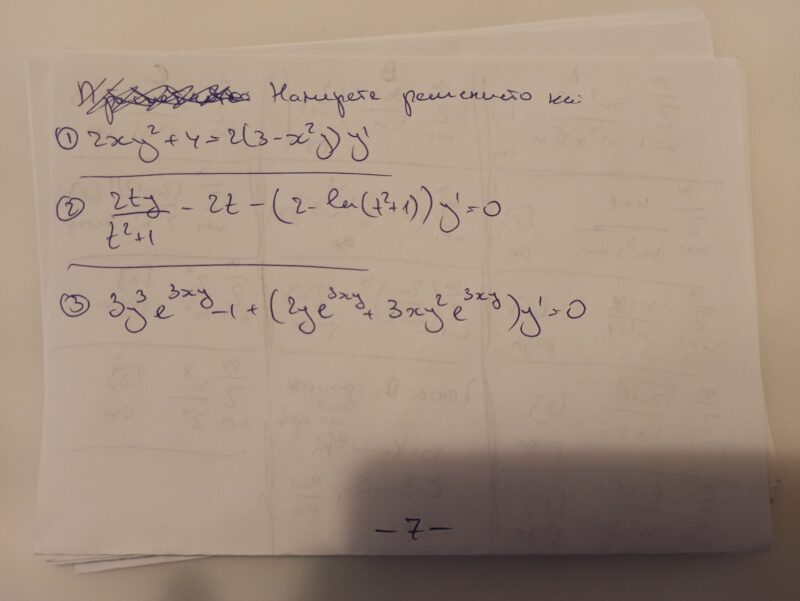 Намерете решението на:
① 2xy² + 4 = 2(3 - x²y) y'
② 2ty/(t²+1) - 2t - (2 - ln(t²+1)) y' = 0
③ 3y³e^(3xy) - 1 + (2ye^(3xy) + 3xy²e^(3xy)) y' = 0
- 7 -